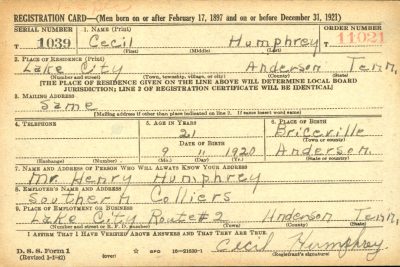 REGISTRATION CARD—(Men born on or after February 17, 1897 and on or before December 31, 1921)
SERIAL NUMBER 1. NAME (Print) ORDER NUMBER
T 1039 Cecil Humphrey T 11021
(First) (Middle) (Last)
2. PLACE OF RESIDENCE (Print)
Lake City Anderson Tenn.
(Number and street) (Town, township, village, or city) (County) (State)
[THE PLACE OF RESIDENCE GIVEN ON THE LINE ABOVE WILL DETERMINE LOCAL BOARD
JURISDICTION; LINE 2 OF REGISTRATION CERTIFICATE WILL BE IDENTICAL]
3. MAILING ADDRESS
Same
[Mailing address if other than place indicated on line 2. If same insert word same]
4. TELEPHONE 5. AGE IN YEARS 6. PLACE OF BIRTH
21 Briceville
DATE OF BIRTH (Town or county)
9 11 1920 Anderson
(Exchange) (Number) (Mo.) (Day) (Yr.) (State or country)
7. NAME AND ADDRESS OF PERSON WHO WILL ALWAYS KNOW YOUR ADDRESS
Mr Henry Humphrey
8. EMPLOYER'S NAME AND ADDRESS
Southern Colliers
9. PLACE OF EMPLOYMENT OR BUSINESS
Lake City Route #2 Anderson Tenn.
(Number and street or R. F. D. number) (Town) (County) (State)
I AFFIRM THAT I HAVE VERIFIED ABOVE ANSWERS AND THAT THEY ARE TRUE.
D. S. S. Form 1
(Revised 1-1-42) (over) GPO 16—21630-1 Cecil Humphrey
(Registrant's signature)